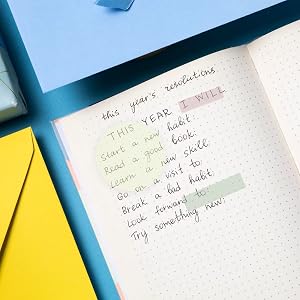 this year's resolutions.
THIS YEAR I WILL
Start a new habit:
Read a good book:
Learn a new skill:
Go on a visit to:
Break a bad habit:
Look forward to:
Try something new: